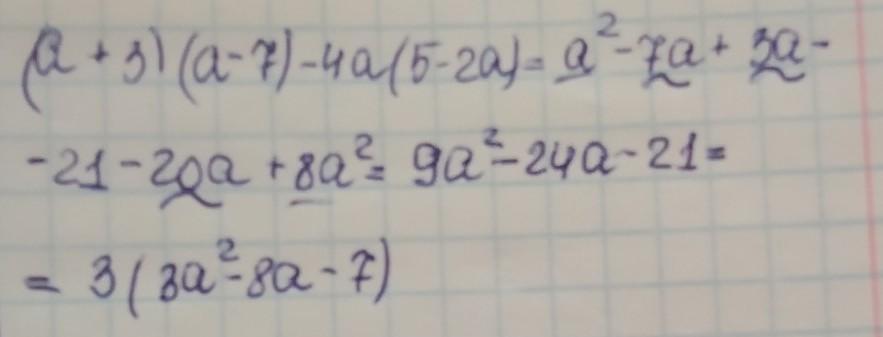 (a + 3) (a - 7) - 4a(5 - 2a) = a² - 7a + 3a -
- 21 - 20a + 8a² = 9a² - 24a - 21 =
= 3(3a² - 8a - 7)